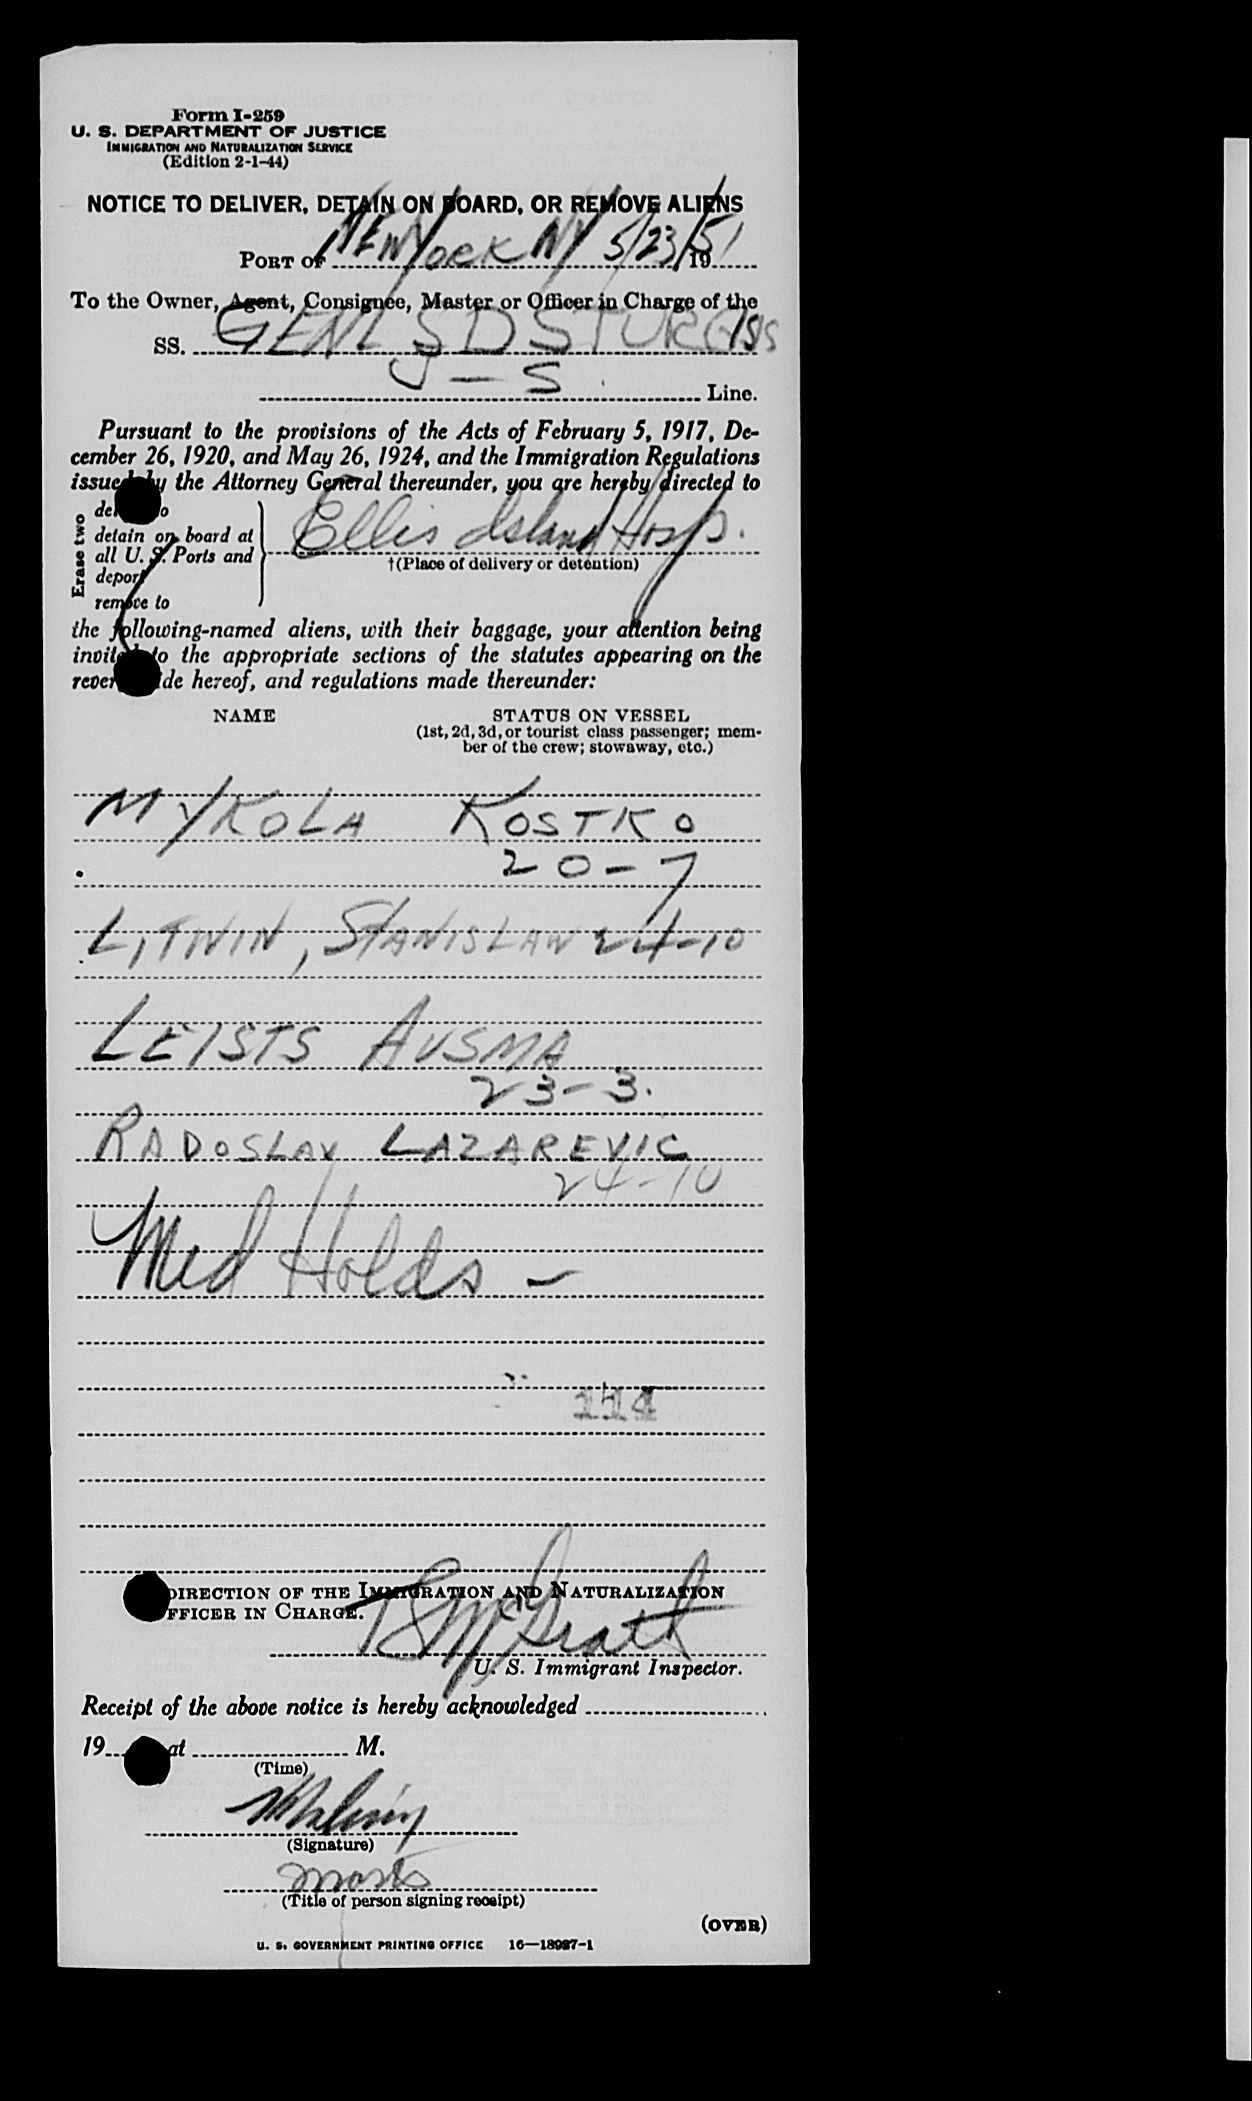 Form I-259
U. S. DEPARTMENT OF JUSTICE
IMMIGRATION AND NATURALIZATION SERVICE
(Edition 2-1-44)
NOTICE TO DELIVER, DETAIN ON BOARD, OR REMOVE ALIENS
PORT OF NEW YORK NY 5/23/51 19
To the Owner, Agent, Consignee, Master or Officer in Charge of the
SS. GENL S D STURGIS
U-S Line.
Pursuant to the provisions of the Acts of February 5, 1917, De-
cember 26, 1920, and May 26, 1924, and the Immigration Regulations
issued by the Attorney General thereunder, you are hereby directed to
Erase two
detain on board at
all U. S. Ports and
deport
remove to
Ellis Island Hosp.
†(Place of delivery or detention)
the following-named aliens, with their baggage, your attention being
invited to the appropriate sections of the statutes appearing on the
reverse side hereof, and regulations made thereunder:
NAME STATUS ON VESSEL
(1st, 2d, 3d, or tourist class passenger; mem-
ber of the crew; stowaway, etc.)
MYKOLA KOSTKO
20-7
LITWIN, STANISLAW 24-10
LEISTS AUSMA
23-3.
RADOSLAV LAZAREVIC
24-10
Med Holds -
114
DIRECTION OF THE IMMIGRATION AND NATURALIZATION
OFFICER IN CHARGE.
McGrath
U. S. Immigrant Inspector.
Receipt of the above notice is hereby acknowledged
19 at M.
(Time)
(Signature)
(Title of person signing receipt)
(OVER)
U. S. GOVERNMENT PRINTING OFFICE 16—18987-1